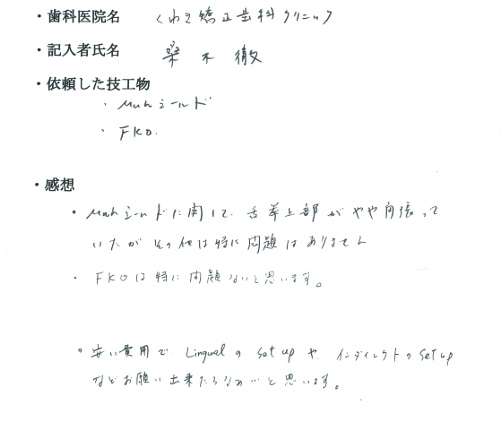 ・歯科医院名 くわき矯正歯科クリニック
・記入者氏名 桑木 徹
・依頼した技工物
・Muhシールド
・FKO.
・感想
・Muhシールドに関して、舌挙上部がやや角張って
いたがその他は特に問題はありません
・FKOは特に問題ないと思います。
・安い費用で Lingualの Set upや、インダイレクトのSetup
などお願い出来たらなぁ〜と思います。